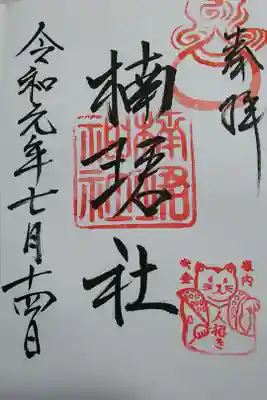 奉拝
楠珺社
楠珺
神社
令和元年七月十四日
家内
安全
人招き